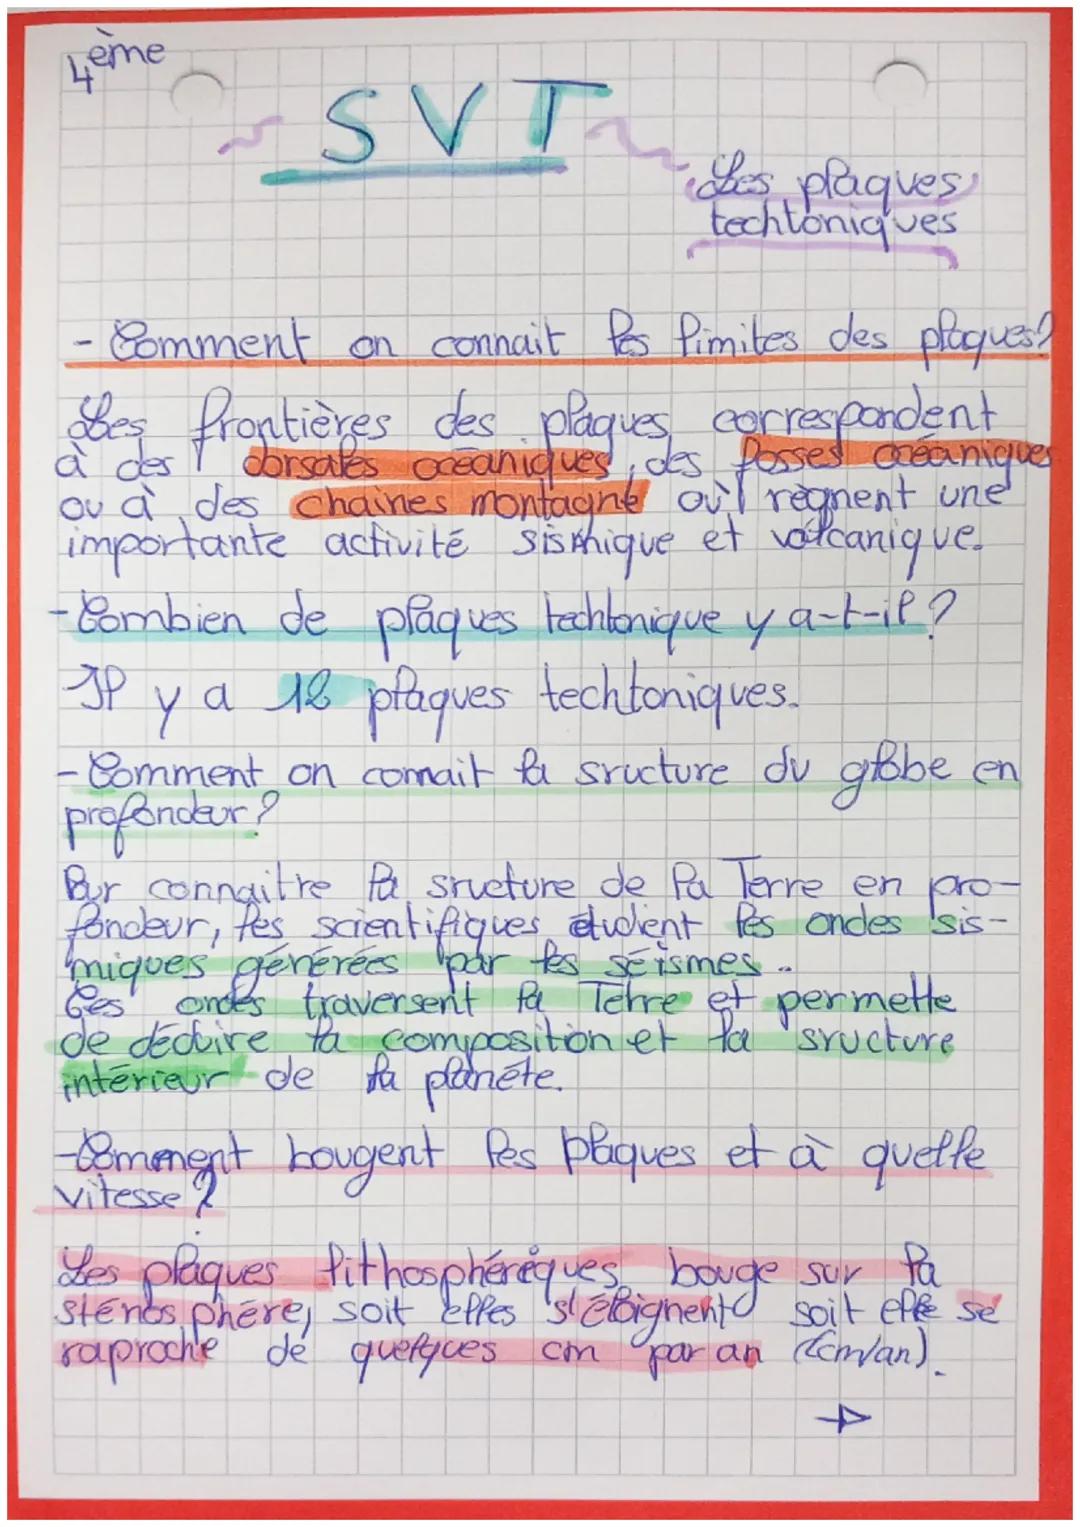 4ème
SVT
Les plaques
techtoniques
- Comment on connait les limites des plaques?
Les frontières des plaques correspondent
à des dorsales océaniques, des fosses océaniques
ou à des chaines montagne où règnent une
importante activité sismique et volcanique.
- Combien de plaques techtonique y a-t-il?
Il y a 12 plaques techtoniques.
- Comment on connait la sructure du globe en
profondeur?
Pour connaitre la sructure de la Terre en pro-
fondeur, les scientifiques étudient les ondes sis-
miques générées par les séismes.
Ces ondes traversent la Terre et permette
de déduire la composition et la sructure
intérieur de la planéte.
- Comment bougent les plaques et à quelle
vitesse?
Les plaques lithosphériques bouge sur la
sténosphère, soit elles s'éloignent soit elle se
raproche de quelques cm par an (2cm/an).